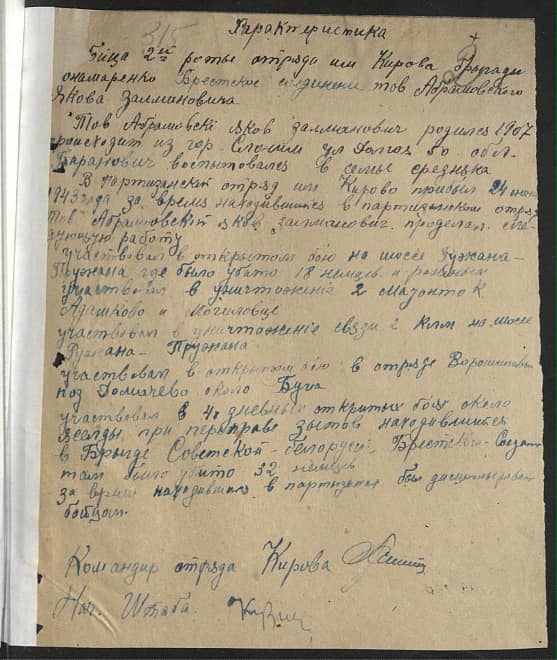 315
Характеристика
Бойца 2ой роты отряда им Кирова Бригады
онамаренко Брестское соединени тов Абрамовского
Якова Залмановича
Тов Абрамовскй яков залманович родился 1907
происходит из гор. Слоним ул 50. обл.
Баранович воспитовался в семье средняка
В Партизанский отряд им Кирово прибыл 24 июня
1943 года за время находившиеся в партизанском отряд
тов Абрамовский яков залманович. проделал сле-
дующую работу
участвовал в открытом бою на шоссе Ружана-
Пружана где было убито 18 немцев и
участвовал в уничтожение 2 К.
Адашково и Могилевце
участвовал в уничтожение связи 2 клм на шосе
Ружана - Пружана
участвовал в открытом бою в отряде Ворошилова
под Домачево около Буга
участвовал в 4х дневных открытых боях около
Ясельды, при переправе находившийся
в Брыгде Советской-Белоруси, Брестскы-Соедин
там было убито 32 немець
за время находившися в партизанах был
бойцом.
Командир отряда Кирова
Нач. Штаба